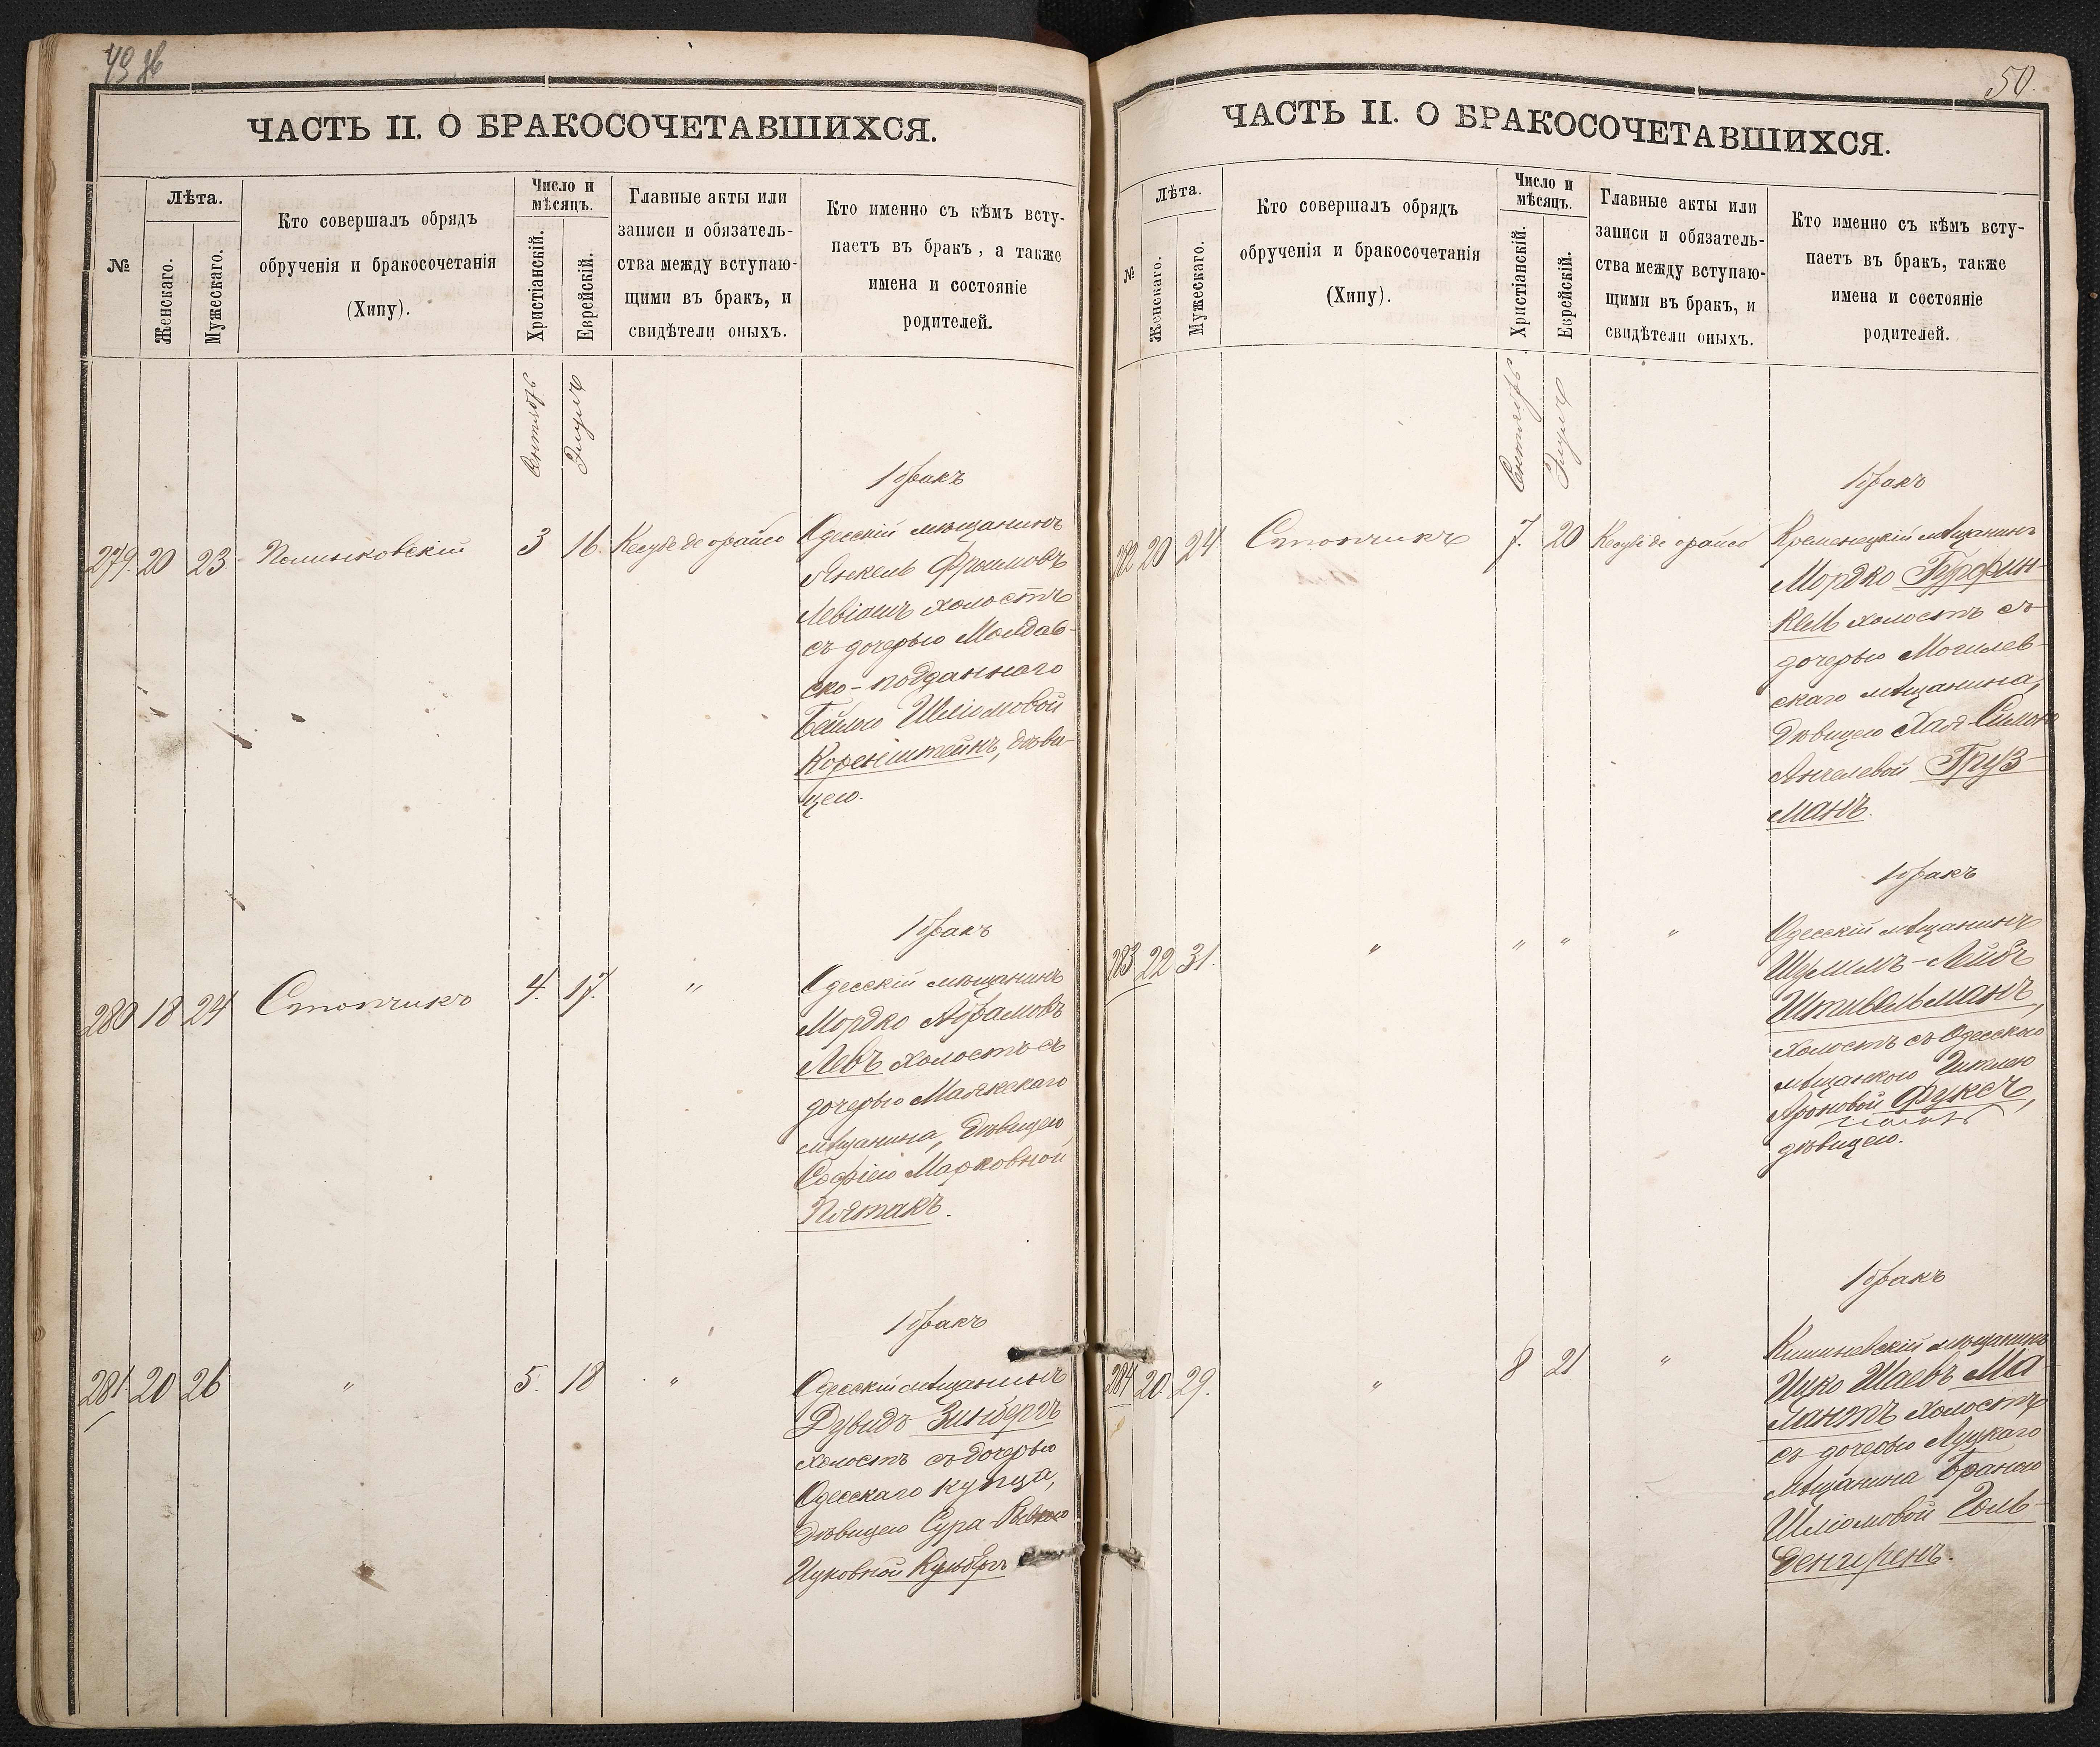 49 об
ЧАСТЬ II. О БРАКОСОЧЕТАВШИХСЯ.
№
Лѣта.
Женскаго.
Мужескаго.
Кто совершалъ обрядъ
обрученія и бракосочетанія
(Хипу).
Число и
мѣсяцъ.
Христіанскій.
Еврейскій.
Главные акты или
записи и обязатель-
ства между вступаю-
щими въ бракъ, и
свидѣтели оныхъ.
Кто именно съ кѣмъ всту-
паетъ въ бракъ, а также
имена и состояніе
родителей.
Сентябрь
Элулъ
1 бракъ
279. 20 23 Полинковскій 3 16. Кесубе де орайсо
Одесскій мѣщанинъ
Янкель Фроимовъ
Левіашъ холостъ
съ дочерью Молдав-
ско-подданнаго
Бейлою Шліомовой
Коренштейнъ, дѣви-
цею.
1 бракъ
280 18 24 Столчикъ 4. 17. "
Одесскій мѣщанинъ
Мордко Абрамовъ
Левъ холостъ съ
дочерью Маякскаго
мѣщанина, дѣвицею
Софіею Марковной
Пятакъ.
1 бракъ
281 20 26 " 5. 18 "
Одесскій мѣщанинъ
Дувидъ Зинбергъ
холостъ съ дочерью
Одесскаго купца,
дѣвицею Сура-Ривкою
Ицковной Кульбергъ
50.
ЧАСТЬ II. О БРАКОСОЧЕТАВШИХСЯ.
№
Лѣта.
Женскаго.
Мужескаго.
Кто совершалъ обрядъ
обрученія и бракосочетанія
(Хипу).
Число и
мѣсяцъ.
Христіанскій.
Еврейскій.
Главные акты или
записи и обязатель-
ства между вступаю-
щими въ бракъ, и
свидѣтели оныхъ.
Кто именно съ кѣмъ всту-
паетъ въ бракъ, также
имена и состояніе
родителей.
Сентябрь
Элулъ
1 бракъ
282 20 24. Столчикъ 7. 20 Кесубе де орайсо
Кременецкій мѣщанинъ
Мордко Гурфин-
кель холостъ съ
дочерью Могилев-
скаго мѣщанина,
дѣвицею Хая-Симою
Анчелевой Груз-
манъ.
1 бракъ
283 22 31. " " " "
Одесскій мѣщанинъ
Шулимъ-Лейбъ
Штивельманъ,
холостъ съ Одесскою
мѣщанкою
Ароновой Фуксъ,
дѣвицею.
1 бракъ
284 20. 29. " 8 21 "
Кишиневскій мѣщанинъ
Ицко Шаевъ Ма-
лантъ холостъ
съ дочерью Луцкаго
мѣщанина Браною
Шліомовой Голь-
денгеренъ.